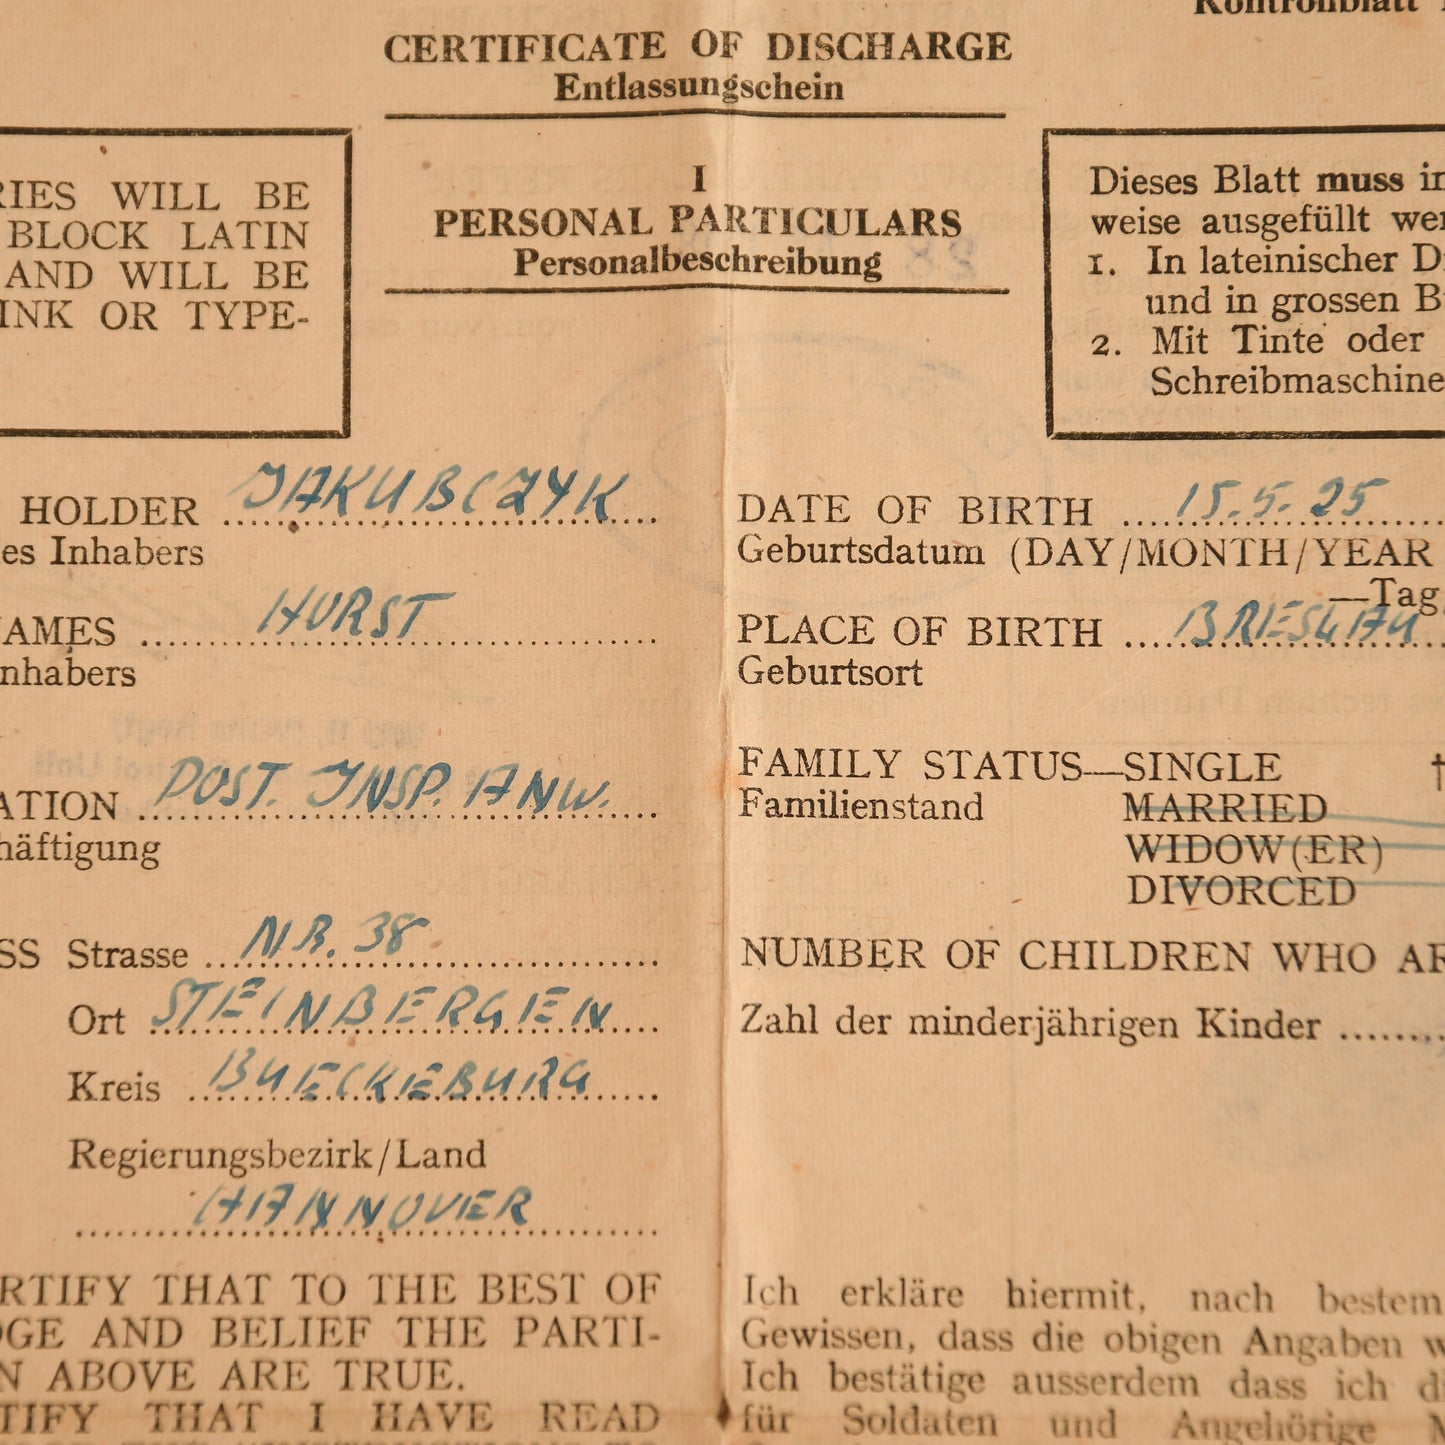 Kontrollblatt
CERTIFICATE OF DISCHARGE
Entlassungschein
RIES WILL BE
BLOCK LATIN
AND WILL BE
INK OR TYPE-
I
PERSONAL PARTICULARS
Personalbeschreibung
Dieses Blatt muss in
weise ausgefüllt wer
1. In lateinischer D
und in grossen B
2. Mit Tinte oder
Schreibmaschine
HOLDER JAKUBCZYK
es Inhabers
AMES HORST
nhabers
ATION POST. INSP. ANW.
häftigung
SS Strasse NR. 38
Ort STEINBERGEN
Kreis BUECKEBURG
Regierungsbezirk/Land
HANNOVER
RTIFY THAT TO THE BEST OF
GE AND BELIEF THE PARTI-
N ABOVE ARE TRUE.
TIFY THAT I HAVE READ
DATE OF BIRTH 15.5.25
Geburtsdatum (DAY/MONTH/YEAR
—Tag
PLACE OF BIRTH BRIESGAU
Geburtsort
FAMILY STATUS—SINGLE †
Familienstand MARRIED
WIDOW(ER)
DIVORCED
NUMBER OF CHILDREN WHO AR
Zahl der minderjährigen Kinder
Ich erkläre hiermit, nach bestem
Gewissen, dass die obigen Angaben w
Ich bestätige ausserdem dass ich di
für Soldaten und Angehörige M